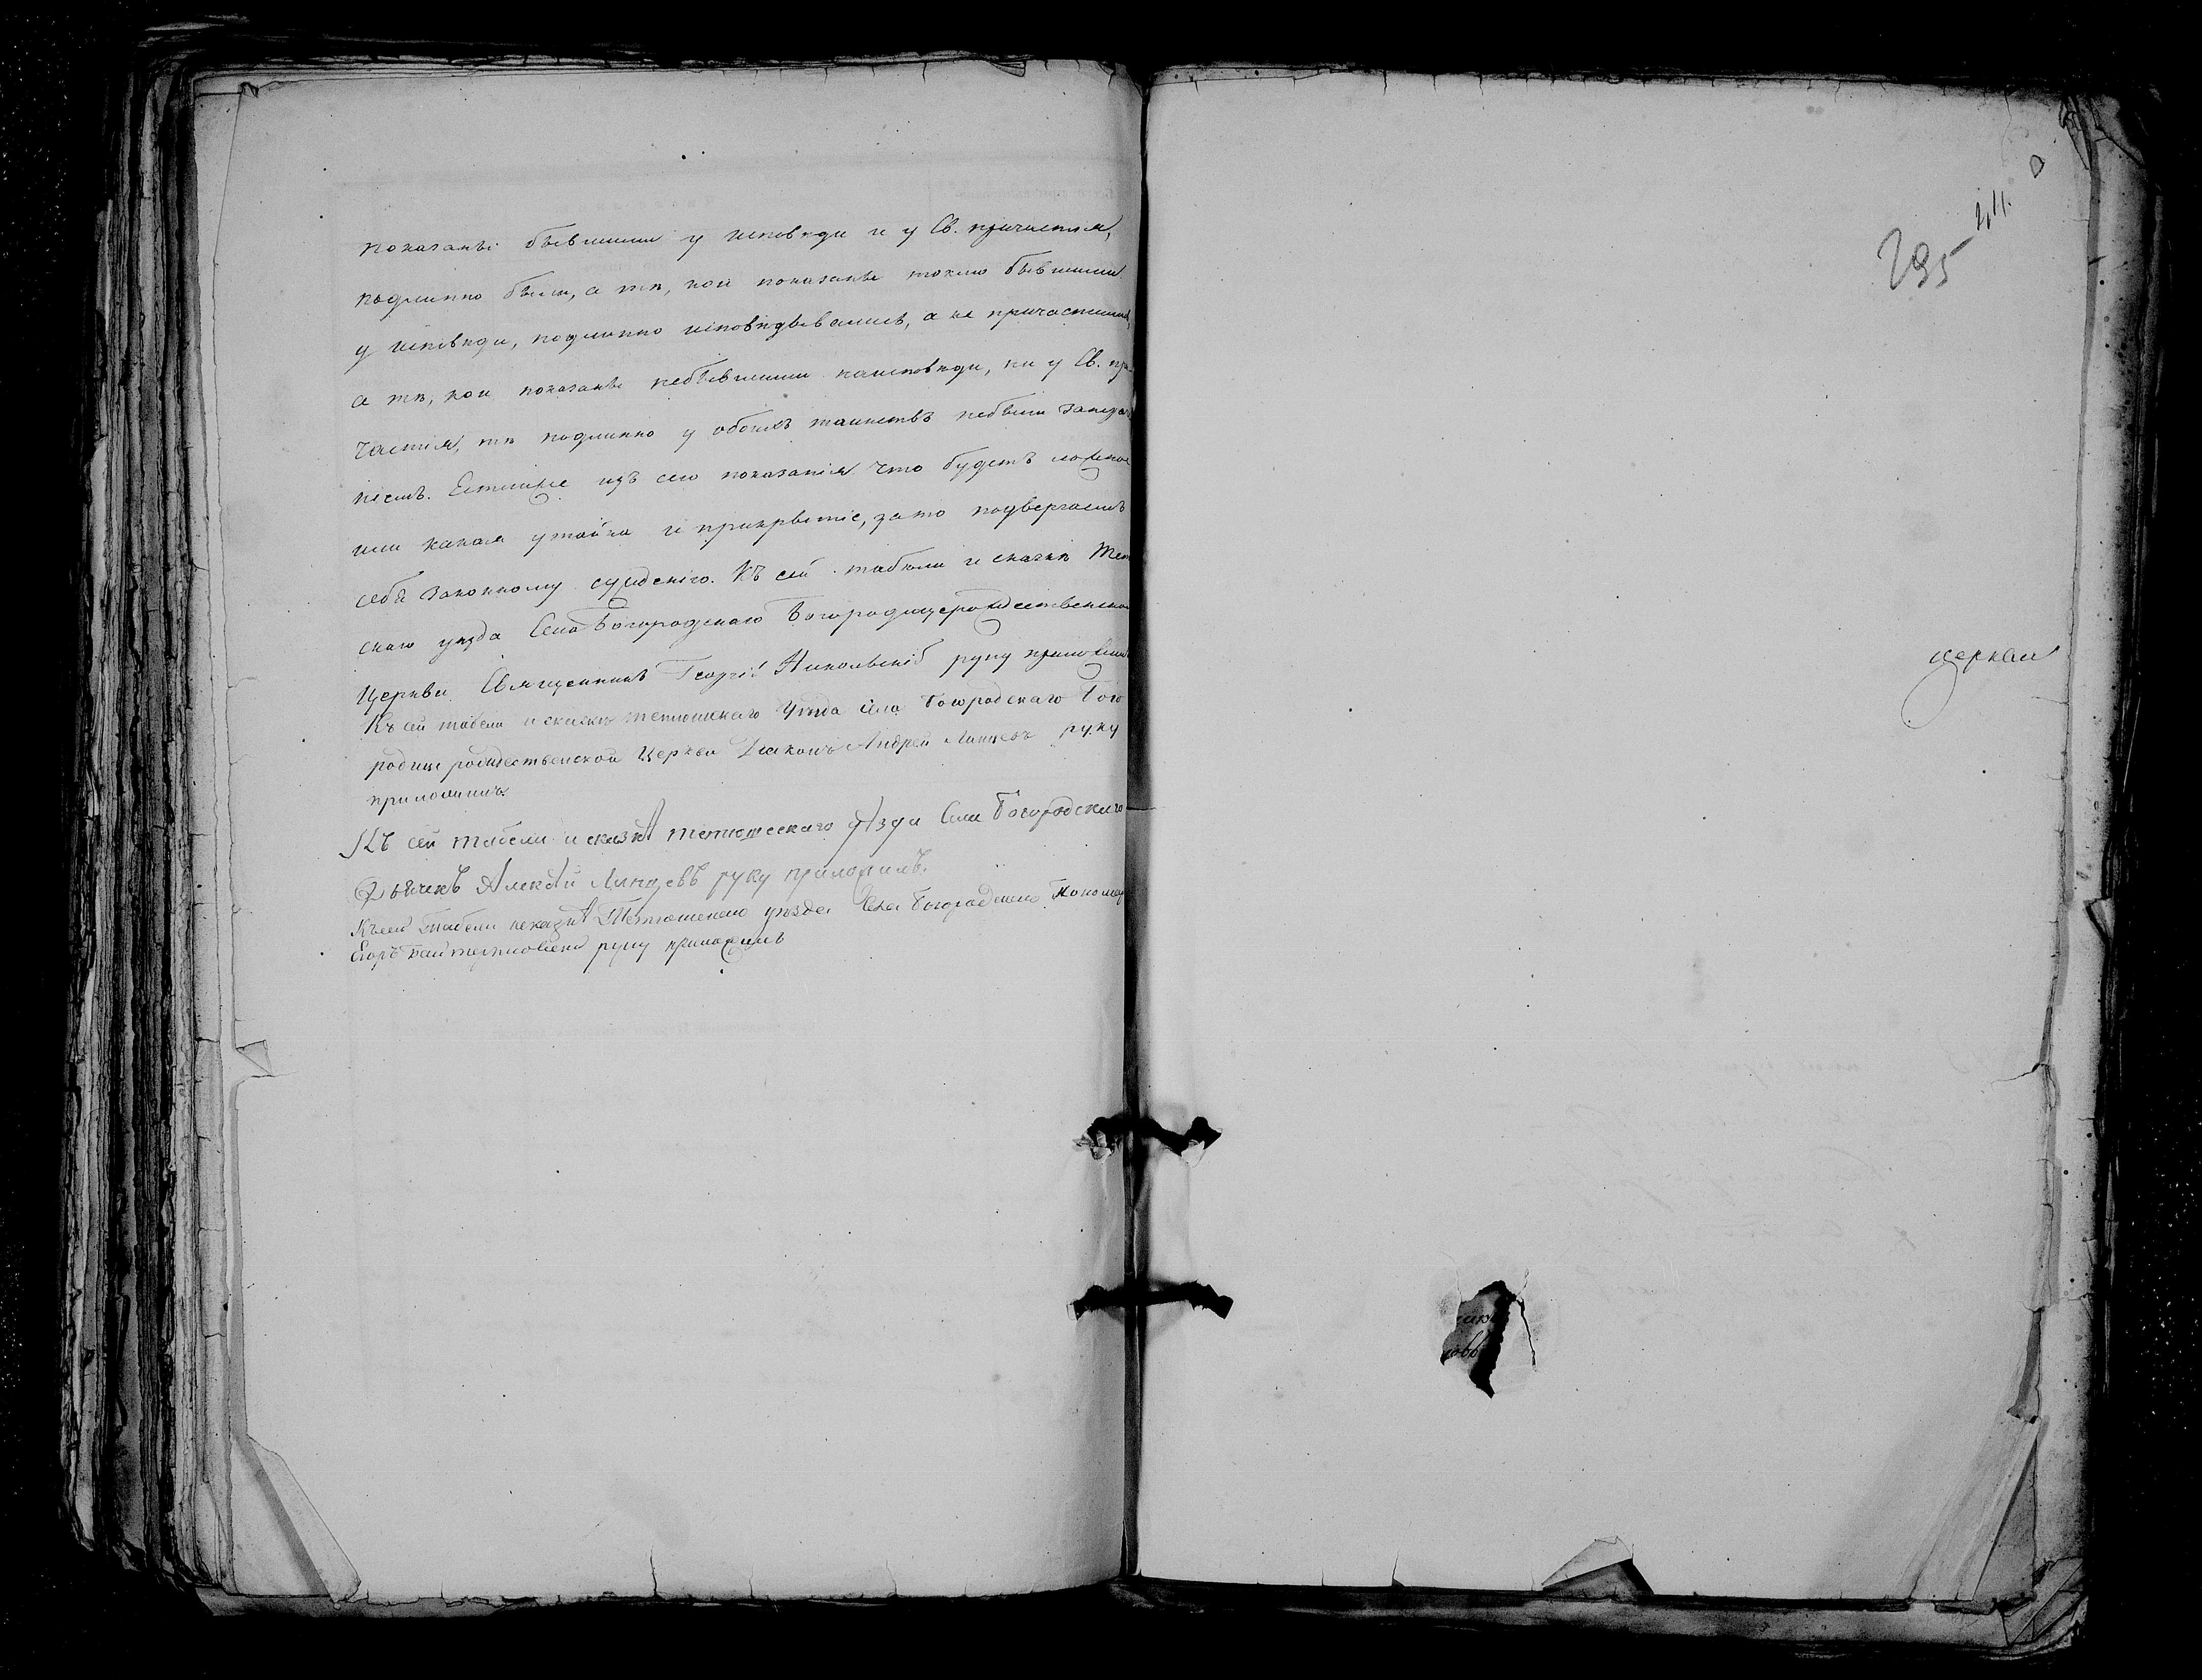 показаны бывшими у исповѣди и у Св. причастія,
подлинно были, а тѣ, кои показаны токмо бывшими
у исповѣди, подлинно исповѣдывались, а не причастились,
а тѣ, кои показаны небывшими наисповѣди, ни у Св. при-
частія, тѣ подлинно у обоихъ таинствъ небыли занерас
ніемъ. Естьлиже изъ сего показанія что будетъ ложное
или какая утайка и прикрытіе, зато подвергаемъ
себя законному сужденію. Къ сей табели и сказкѣ Тетю
скаго уѣзда Села Богородскаго Богородицерождественской
Церкви Священникъ Георгій Никольскій руку приложилъ
Къ сей табели и сказкѣ тетюшскаго Уѣзда Села Богородскаго Бого
родице рождественской Церкви Діаконъ Андрей руку
приложилъ.
Къ сей табели и сказкѣ тетюшескаго уѣзда Села Богородскаго
Дьячекъ Алексѣй руку приложилъ.
Ксей Табели исказкѣ Тетюшскаго уѣзда Села Богородскаго Пономарь
Егоръ руку приложилъ
295
церкви